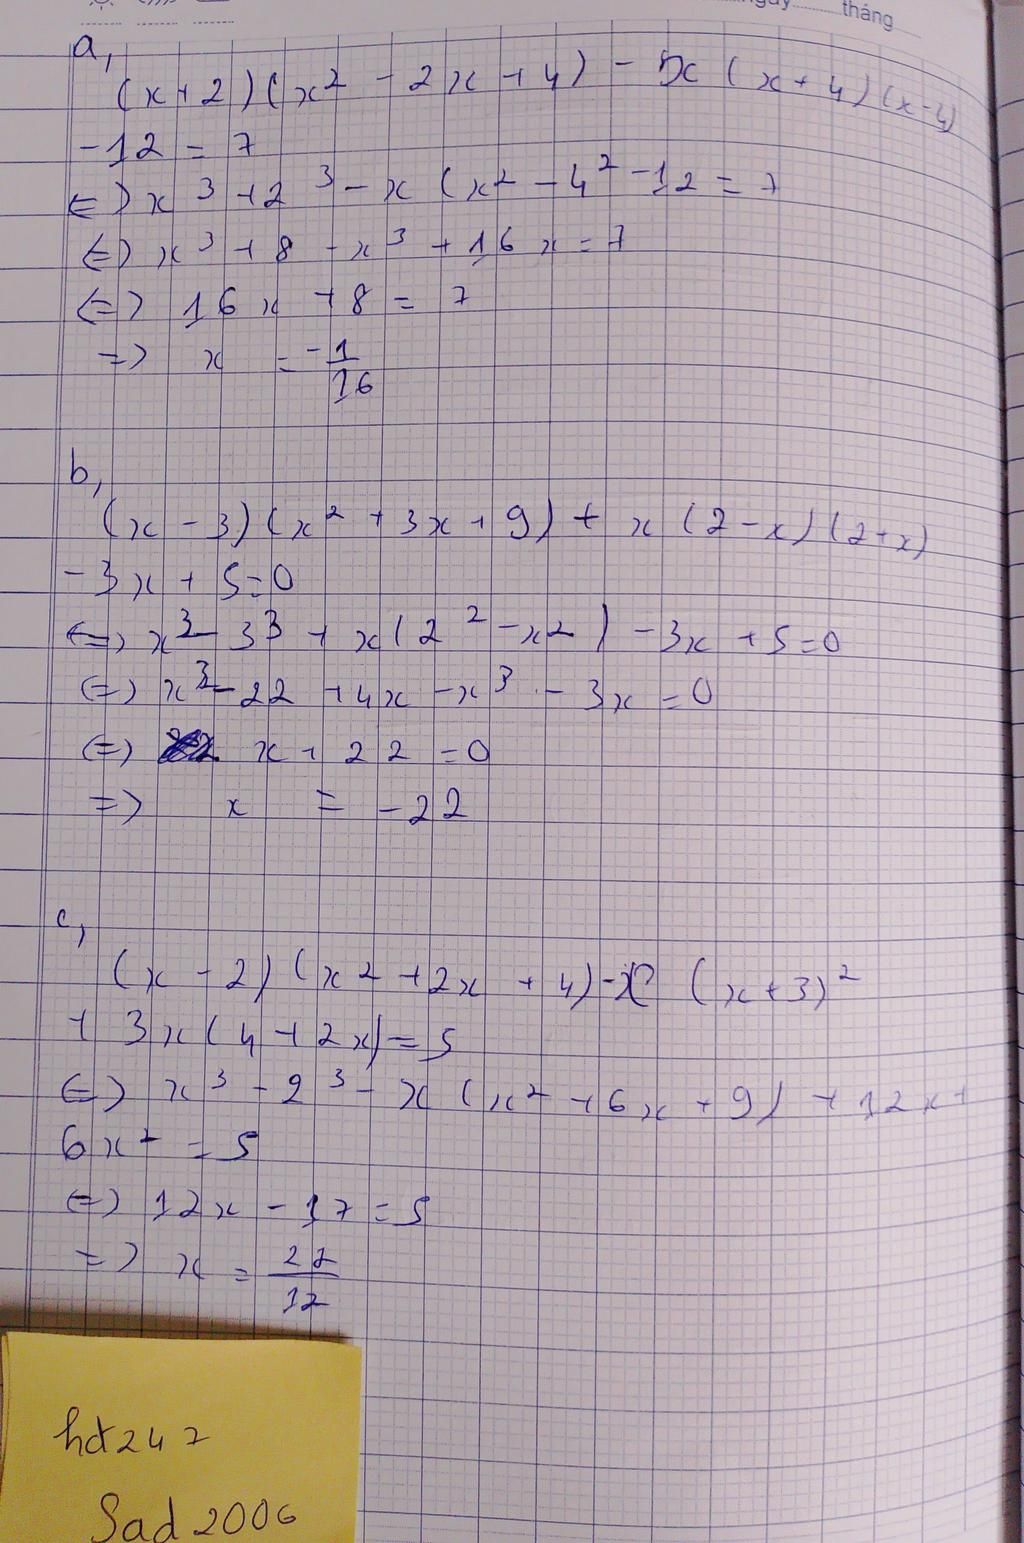 tháng
a,
(x+2)(x² - 2x + 4) - x(x+4)(x-4)
-12 = 7
<=> x³ + 2³ - x(x² - 4² - 12 = 7
<=> x³ + 8 - x³ + 16x = 7
<=> 16x + 8 = 7
=> x = -1/16
b,
(x - 3)(x² + 3x + 9) + x(2-x)(2+x)
-3x + 5 = 0
<=> x³ - 3³ + x(2² - x²) - 3x + 5 = 0
<=> x³ - 22 + 4x - x³ - 3x = 0
<=> x + 22 = 0
=> x = -22
c,
(x - 2)(x² + 2x + 4) - x(x+3)²
+ 3x(4 + 2x) = 5
<=> x³ - 2³ - x(x² + 6x + 9) + 12x +
6x² = 5
<=> 12x - 17 = 5
=> x = 22/12
hdt247
Sad2006